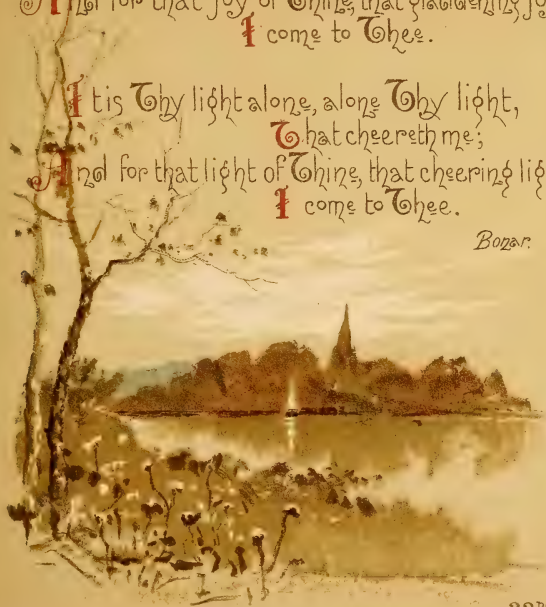 And for that joy of Thine, that gladdening jo
I come to Thee.
It is Thy light alone, alone Thy light,
That cheereth me;
And for that light of Thine, that cheering lig
I come to Thee.
Bonar.